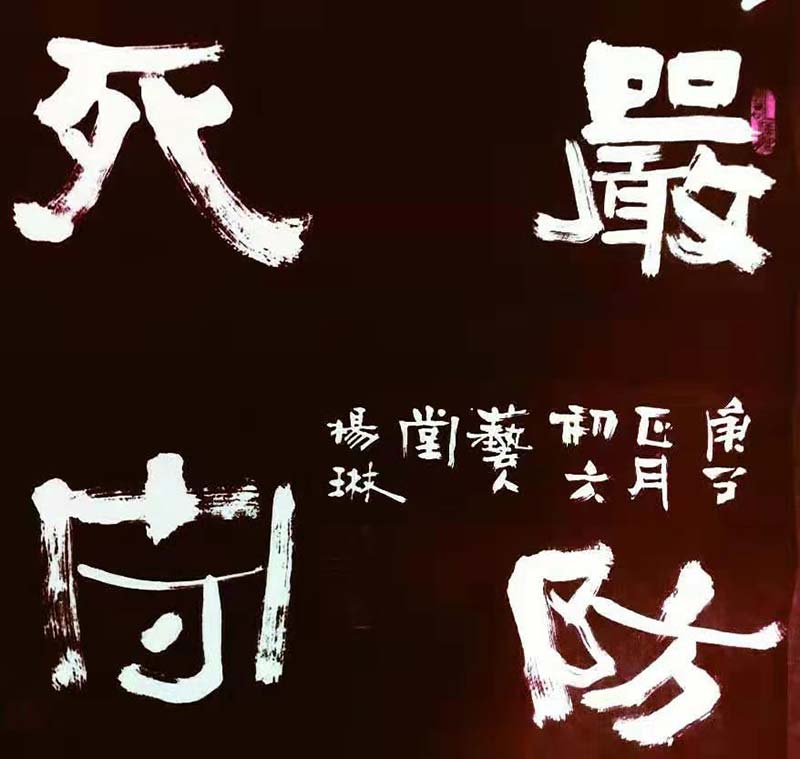 嚴防
死守
庚子
正月
初六
藝人
堂
楊琳